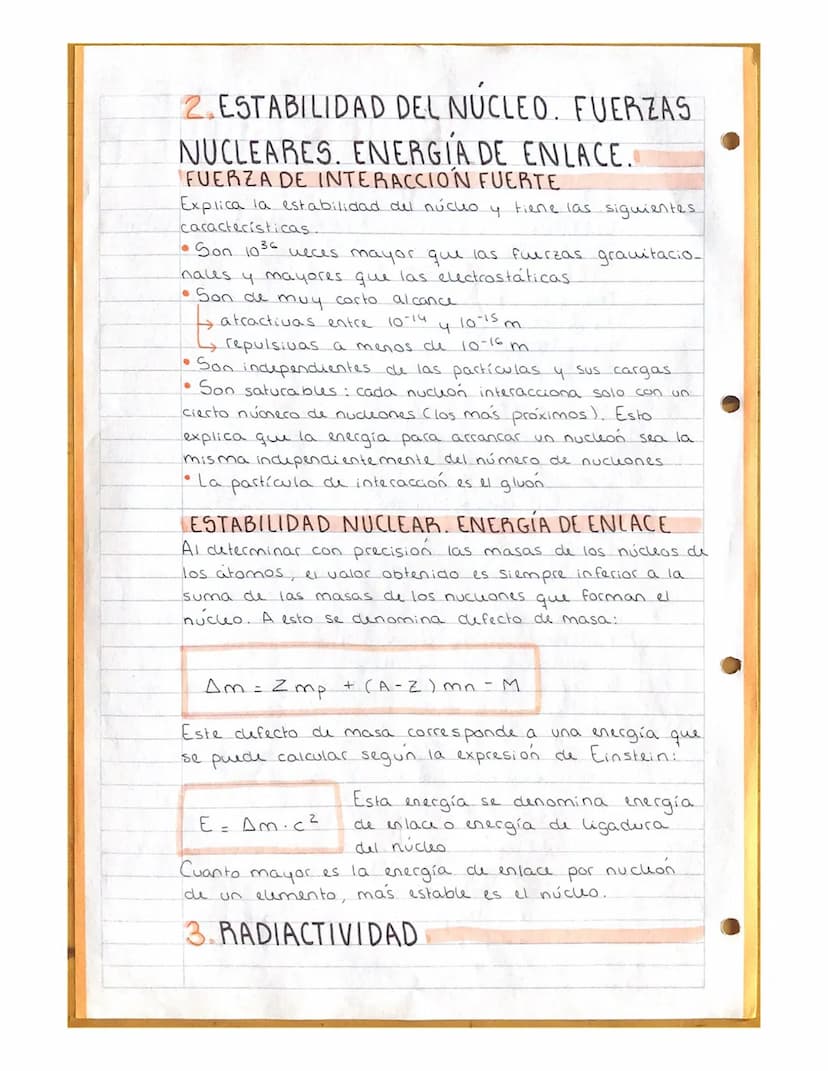 2. ESTABILIDAD DEL NÚCLEO. FUERZAS
NUCLEARES. ENERGÍA DE ENLACE.
FUERZA DE INTERACCIÓN FUERTE
Explica la estabilidad del núcleo y tiene las siguientes
características.
• Son 10³⁶ veces mayor que las fuerzas gravitacio-
nales y mayores que las electrostáticas
• Son de muy corto alcance
↳ atractivas entre 10⁻¹⁴ y 10⁻¹⁵ m
↳ repulsivas a menos de 10⁻¹⁶ m
• Son independientes de las partículas y sus cargas
• Son saturables: cada nucleón interacciona solo con un
cierto número de nucleones (los más próximos). Esto
explica que la energía para arrancar un nucleón sea la
misma independientemente del número de nucleones
• La partícula de interacción es el gluón
ESTABILIDAD NUCLEAR. ENERGÍA DE ENLACE
Al determinar con precisión las masas de los núcleos de
los átomos, el valor obtenido es siempre inferior a la
suma de las masas de los nucleones que forman el
núcleo. A esto se denomina defecto de masa:
Δm = Zmp + (A-Z)mn - M
Este defecto de masa corresponde a una energía que
se puede calcular según la expresión de Einstein:
E = Δm·c²
Esta energía se denomina energía
de enlace o energía de ligadura
del núcleo
Cuanto mayor es la energía de enlace por nucleón
de un elemento, más estable es el núcleo.
3. RADIACTIVIDAD